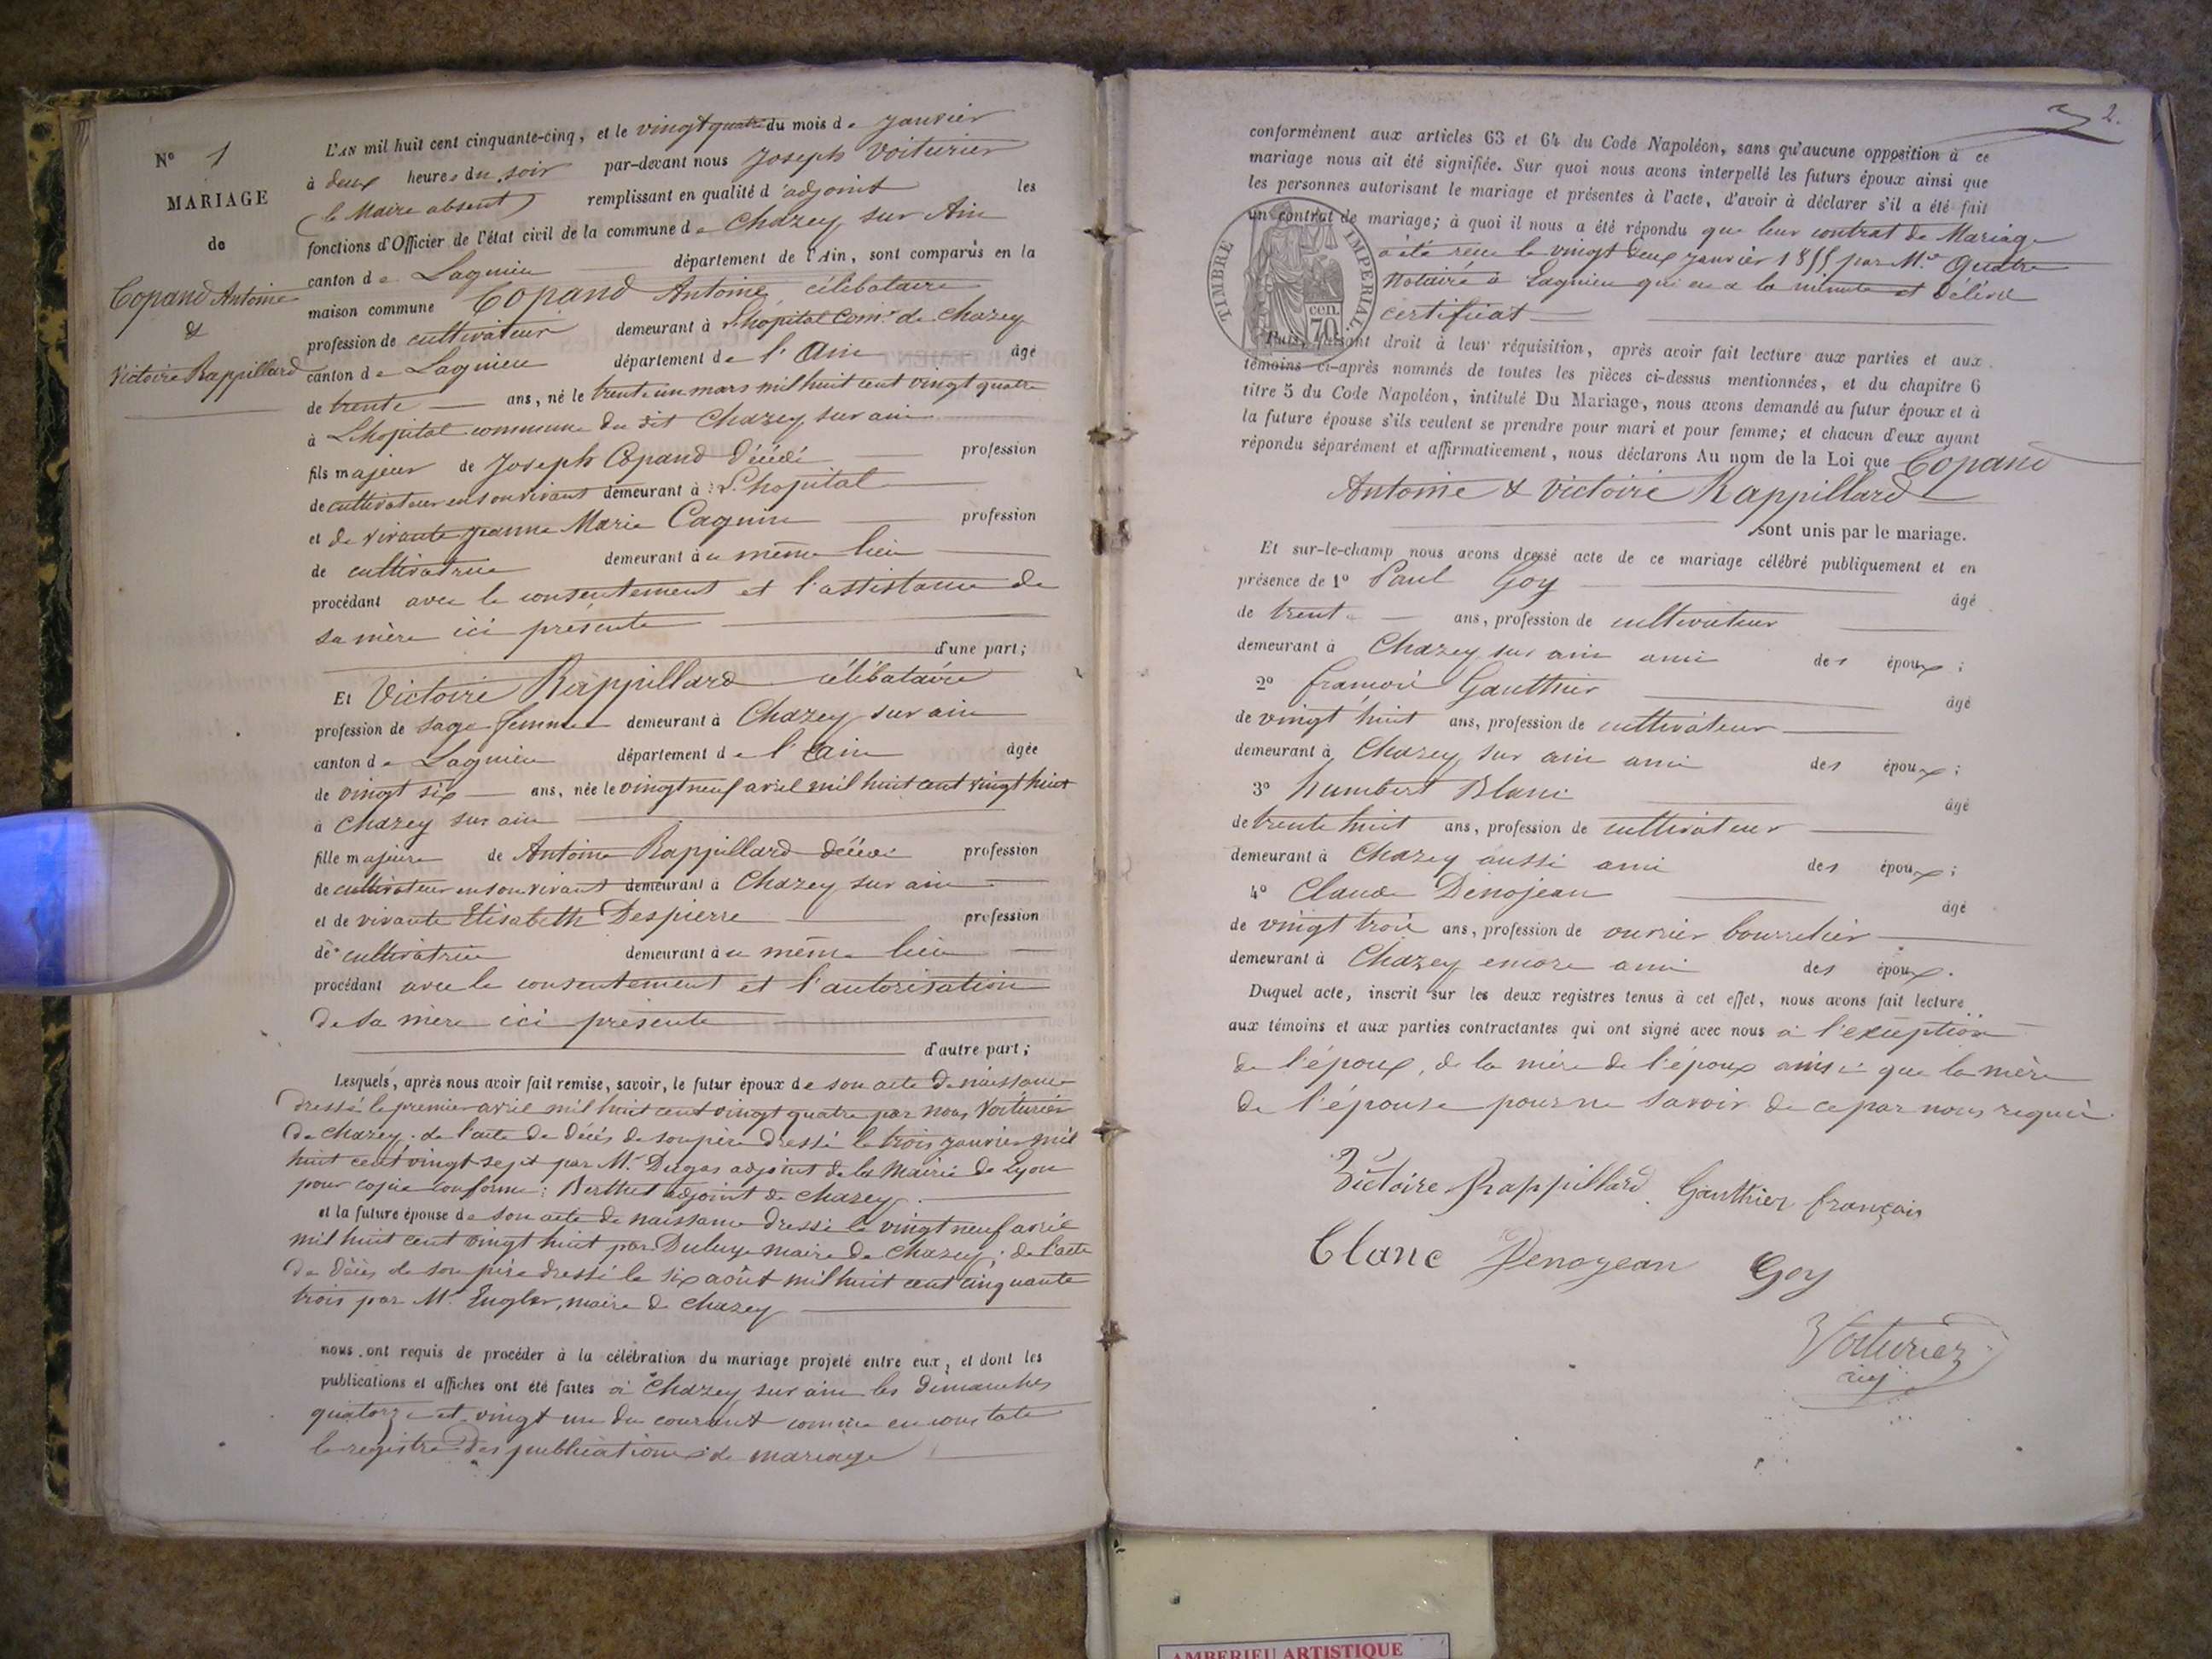 N° 1
MARIAGE
de
Copand Antoine
&
Victoire Rappillard
L'AN mil huit cent cinquante-cinq, et le vingt quatre du mois de janvier
à deux heures du soir par-devant nous Joseph Voiturier
(le Maire absent) remplissant en qualité d'adjoint les
fonctions d'Officier de l'état civil de la commune de Chazey sur Ain
canton de Lagnieu département de l'Ain, sont comparus en la
maison commune Copand Antoine, célibataire
profession de cultivateur demeurant à L'hopital Com.e de Chazey
canton de Lagnieu département de l'Ain âgé
de trente ans, né le trente un mars mil huit cent vingt quatre
à L'hopital commune du dit Chazey sur ain
fils majeur de Joseph Copand Décédé profession
de cultivateur en son vivant demeurant à L'hopital
et de vivante Jeanne Marie Cagnin profession
de cultivatrice demeurant au même lieu
procédant avec le consentement et l'assistance de
sa mère ici présente
d'une part;
Et Victoire Rappillard célibataire
profession de sage femme demeurant à Chazey sur ain
canton de Lagnieu département de l'Ain âgée
de vingt six ans, née le vingt neuf avril mil huit cent vingt huit
à Chazey sur ain
fille majeure de Antoine Rappillard décédé profession
de cultivateur en son vivant demeurant à Chazey sur ain
et de vivante Elisabeth Despierre profession
de cultivatrice demeurant au même lieu
procédant avec le consentement et l'autorisation
de sa mère ici présente
d'autre part;
Lesquels, après nous avoir fait remise, savoir, le futur époux de son acte de naissance
dressé le premier avril mil huit cent vingt quatre par nous Voiturier
de Chazey; de l'acte de décès de son père dressé le trois janvier mil
huit cent vingt sept par Mr. Dugas adjoint de la Mairie de Lyon
pour copie conforme: Berthet adjoint de Chazey.
et la future épouse de son acte de naissance dressé le vingt neuf avril
mil huit cent vingt huit par maire de Chazey; de l'acte
de décès de son père dressé le six août mil huit cent cinquante
trois par Mr. Engler, maire de Chazey
nous ont requis de procéder à la célébration du mariage projeté entre eux, et dont les
publications et affiches ont été faites à Chazey sur ain les dimanches
quatorze et vingt un du courant comme en constate
le registre des publications de mariage
2.
conformément aux articles 63 et 64 du Code Napoléon, sans qu'aucune opposition à ce
mariage nous ait été signifiée. Sur quoi nous avons interpellé les futurs époux ainsi que
les personnes autorisant le mariage et présentes à l'acte, d'avoir à déclarer s'il a été fait
un contrat de mariage; à quoi il nous a été répondu que leur contrat de Mariage
a été reçu le vingt deux janvier 1855 par M.e Quatre
Notaire à Lagnieu qui en a la minute et Délivré
certificat
TIMBRE IMPERIAL
70 cen.
Puis, faisant droit à leur réquisition, après avoir fait lecture aux parties et aux
témoins ci-après nommés de toutes les pièces ci-dessus mentionnées, et du chapitre 6
titre 5 du Code Napoléon, intitulé Du Mariage, nous avons demandé au futur époux et à
la future épouse s'ils veulent se prendre pour mari et pour femme; et chacun d'eux ayant
répondu séparément et affirmativement, nous déclarons Au nom de la Loi que Copand
Antoine & Victoire Rappillard
sont unis par le mariage.
Et sur-le-champ nous avons dressé acte de ce mariage célébré publiquement et en
présence de 1° Paul Goy âgé
de trente ans, profession de cultivateur
demeurant à Chazey sur ain ami des époux;
2° françois Gauthier âgé
de vingt huit ans, profession de cultivateur
demeurant à Chazey sur ain ami des époux;
3° humbert Blanc âgé
de trente huit ans, profession de cultivateur
demeurant à Chazey aussi ami des époux;
4° Claude Denojean âgé
de vingt trois ans, profession de ouvrier bourrelier
demeurant à Chazey encore ami des époux.
Duquel acte, inscrit sur les deux registres tenus à cet effet, nous avons fait lecture
aux témoins et aux parties contractantes qui ont signé avec nous à l'exception
de l'époux, de la mère de l'époux ainsi que la mère
de l'épouse pour ne savoir de ce par nous requis.
Victoire Rappillard Gauthier françois
Blanc Denojean Goy
Voiturier
adj.
AMBERIEU ARTISTIQUE